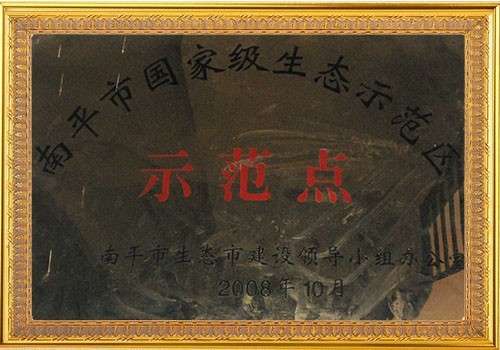 南平市国家级生态示范区
示范点
南平市生态市建设领导小组办公室
2008年10月